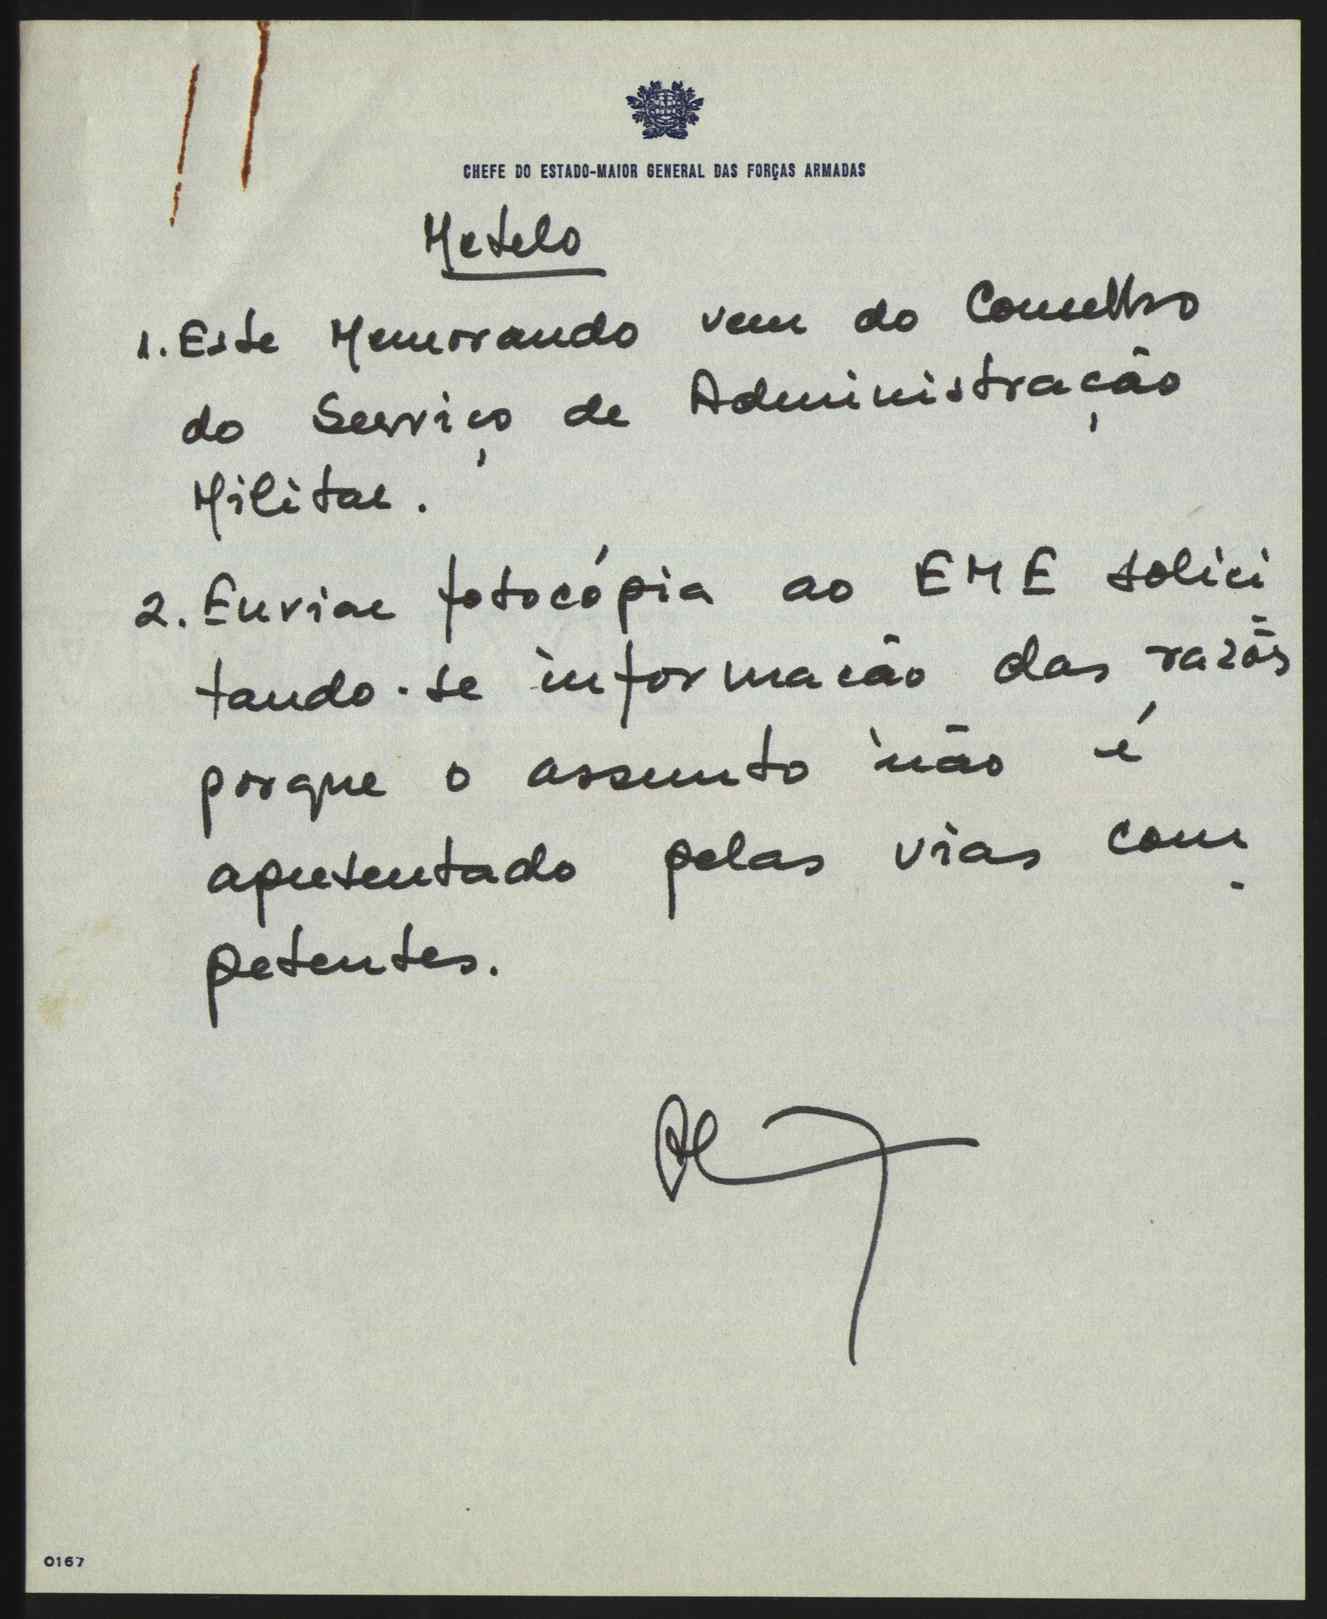 CHEFE DO ESTADO-MAIOR GENERAL DAS FORÇAS ARMADAS
Metelo
1. Este Memorando vem do Conselho
do Serviço de Administração
Militar.
2. Enviar fotocópia ao EME solici
tando-se informacão das razões
porque o assunto não é
apresentado pelas vias com-
petentes.
0167